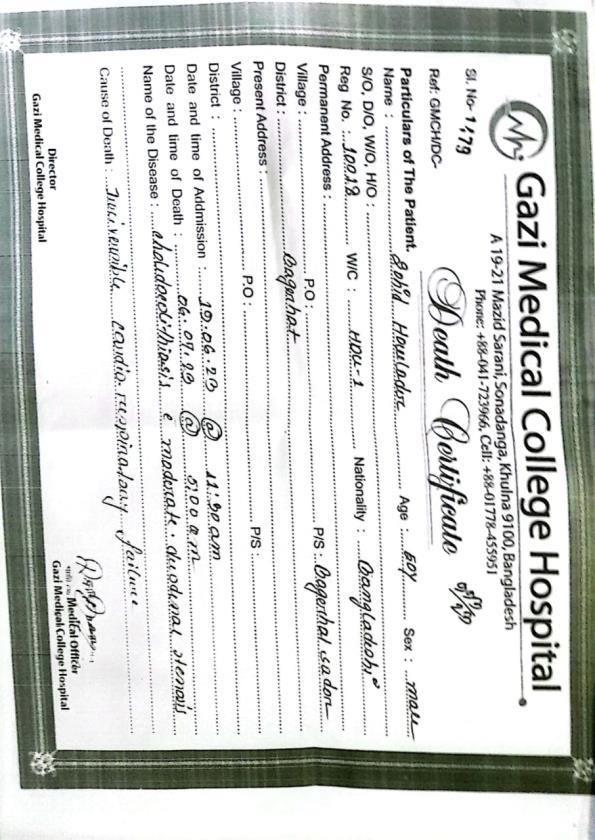 Gazi Medical College Hospital
A 19-21 Mazid Sarani, Sonadanga, Khulna 9100, Bangladesh
Phone: +88-041-723966, Cell: +88-01778-455951
Sl. No- 1479
Ref: GMCH/DC-
Death Certificate
Particulars of The Patient.
Name : Howlader Age : 60y Sex : male
S/O, D/O, W/O, H/O :
Reg No. : 10018 W/C : HDU-1 Nationality : Bangladeshi
Permanent Address :
Village : P.O : P/S : Bagerhat sador
District : Bagerhat
Present Address :
Village : P.O : P/S :
District :
Date and time of Addmission : 19.06.23 @ 11:30 am
Date and time of Death : 06.07.23 @ 5:00 am
Name of the Disease : choledocolithiasis c moderate duodenal stenosis
Cause of Death : Irreversible cardio respiratory failure
Director
Gazi Medical College Hospital
Medical Officer
Gazi Medical College Hospital